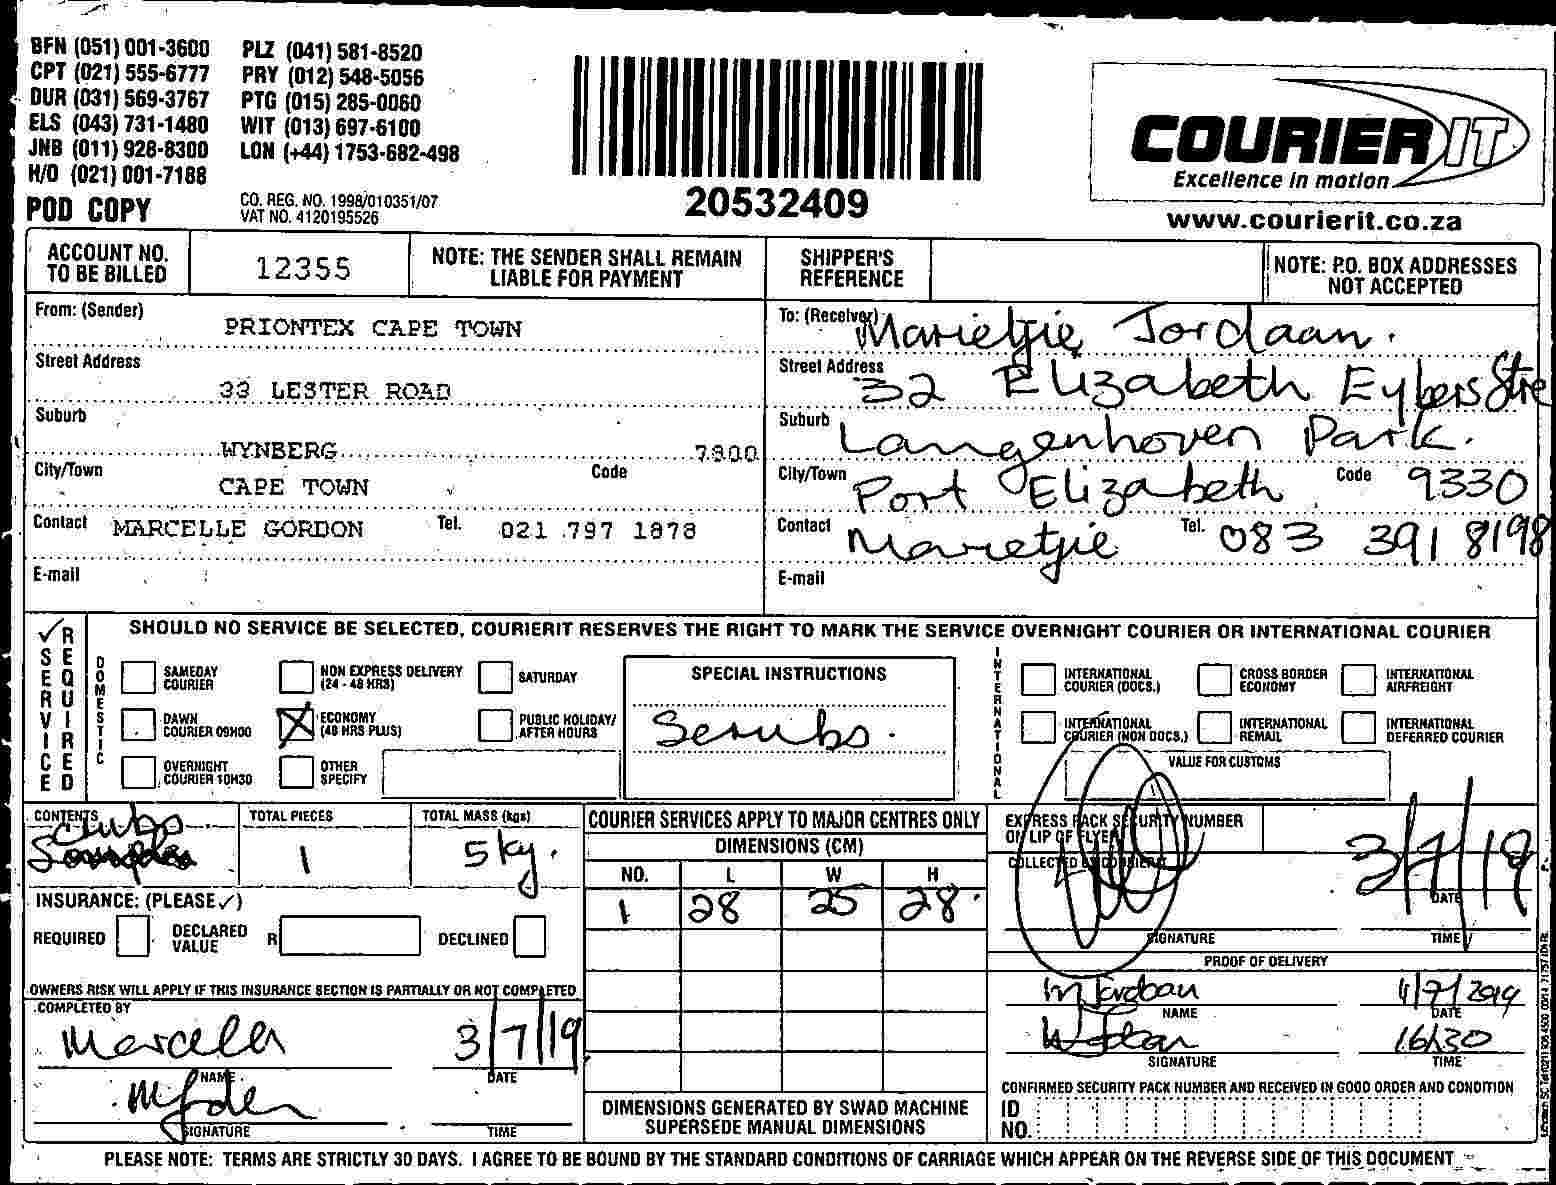 BFN (051) 001-3600 PLZ (041) 581-8520
CPT (021) 555-6777 PRY (012) 548-5056
DUR (031) 569-3767 PTG (015) 285-0060
ELS (043) 731-1480 WIT (013) 697-6100
JNB (011) 928-8300 LON (+44) 1753-682-498
H/O (021) 001-7188
POD COPY
CO. REG. NO. 1998/010351/07
VAT NO. 4120195526
20532409
COURIER IT
Excellence in motion
www.courierit.co.za
ACCOUNT NO. TO BE BILLED 12355
NOTE: THE SENDER SHALL REMAIN LIABLE FOR PAYMENT
SHIPPER'S REFERENCE
NOTE: P.O. BOX ADDRESSES NOT ACCEPTED
From: (Sender) PRIONTEX CAPE TOWN
Street Address 33 LESTER ROAD
Suburb WYNBERG 7800
City/Town CAPE TOWN Code
Contact MARCELLE GORDON Tel. 021 797 1878
E-mail
To: (Receiver) Marietjie Jordaan.
Street Address 32 Elizabeth Eybers Stre
Suburb Langenhoven Park.
City/Town Port Elizabeth Code 9330
Contact Marietjie Tel. 083 391 8198
E-mail
✓ SERVICE REQUIRED
SHOULD NO SERVICE BE SELECTED, COURIERIT RESERVES THE RIGHT TO MARK THE SERVICE OVERNIGHT COURIER OR INTERNATIONAL COURIER
DOMESTIC
SAMEDAY COURIER
NON EXPRESS DELIVERY (24 - 48 HRS)
SATURDAY
DAWN COURIER 09H00
X ECONOMY (48 HRS PLUS)
PUBLIC HOLIDAY/ AFTER HOURS
OVERNIGHT COURIER 10H30
OTHER SPECIFY
SPECIAL INSTRUCTIONS
Scrubs.
INTERNATIONAL
INTERNATIONAL COURIER (DOCS.)
CROSS BORDER ECONOMY
INTERNATIONAL AIRFREIGHT
INTERNATIONAL COURIER (NON DOCS.)
INTERNATIONAL REMAIL
INTERNATIONAL DEFERRED COURIER
VALUE FOR CUSTOMS
CONTENTS
Scrubs
TOTAL PIECES
1
TOTAL MASS (kgs)
5kg.
INSURANCE: (PLEASE ✓)
REQUIRED DECLARED VALUE R DECLINED
OWNERS RISK WILL APPLY IF THIS INSURANCE SECTION IS PARTIALLY OR NOT COMPLETED
COMPLETED BY
Marcelle 3/7/19
NAME DATE
SIGNATURE TIME
COURIER SERVICES APPLY TO MAJOR CENTRES ONLY
DIMENSIONS (CM)
NO. L W H
1 28 25 28
DIMENSIONS GENERATED BY SWAD MACHINE SUPERSEDE MANUAL DIMENSIONS
EXPRESS PACK SECURITY NUMBER ON LIP OF FLYER
COLLECTED BY COURIERIT
3/7/19
DATE
SIGNATURE TIME
PROOF OF DELIVERY
M Jordaan 4/7/2019
NAME DATE
16h30
SIGNATURE TIME
CONFIRMED SECURITY PACK NUMBER AND RECEIVED IN GOOD ORDER AND CONDITION
ID NO.
PLEASE NOTE: TERMS ARE STRICTLY 30 DAYS. I AGREE TO BE BOUND BY THE STANDARD CONDITIONS OF CARRIAGE WHICH APPEAR ON THE REVERSE SIDE OF THIS DOCUMENT